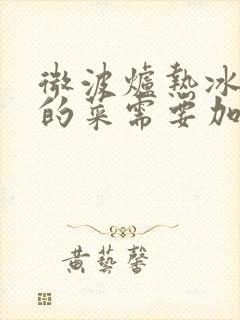 微波爐熱冰
的菜需要加
黄藝馨